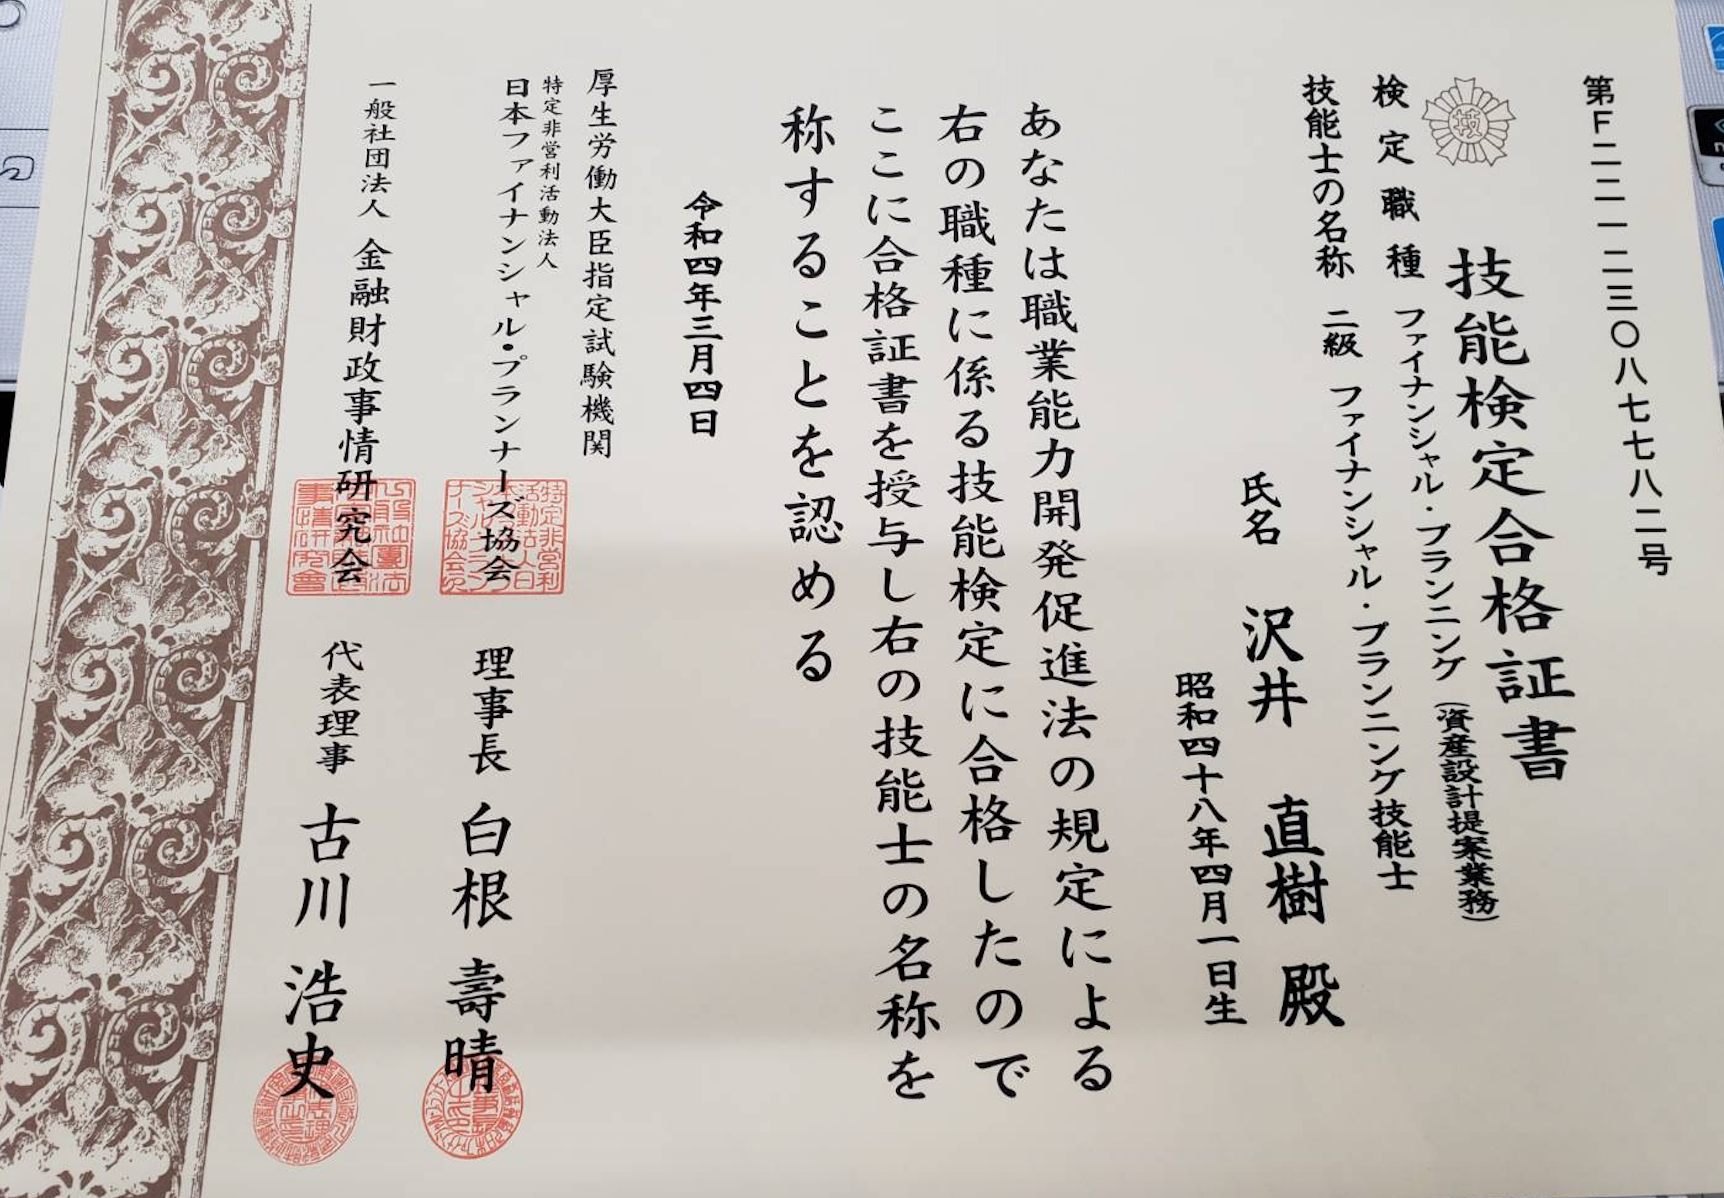 第F二二一二三〇八七七八二号
技能検定合格証書
検定職種 ファイナンシャル・プランニング(資産設計提案業務)
技能士の名称 二級 ファイナンシャル・プランニング技能士
氏名 沢井 直樹 殿
昭和四十八年四月一日生
あなたは職業能力開発促進法の規定による
右の職種に係る技能検定に合格したので
ここに合格証書を授与し右の技能士の名称を
称することを認める
令和四年三月四日
厚生労働大臣指定試験機関
特定非営利活動法人
日本ファイナンシャル・プランナーズ協会 理事長 白根 壽晴
一般社団法人 金融財政事情研究会 代表理事 古川 浩史